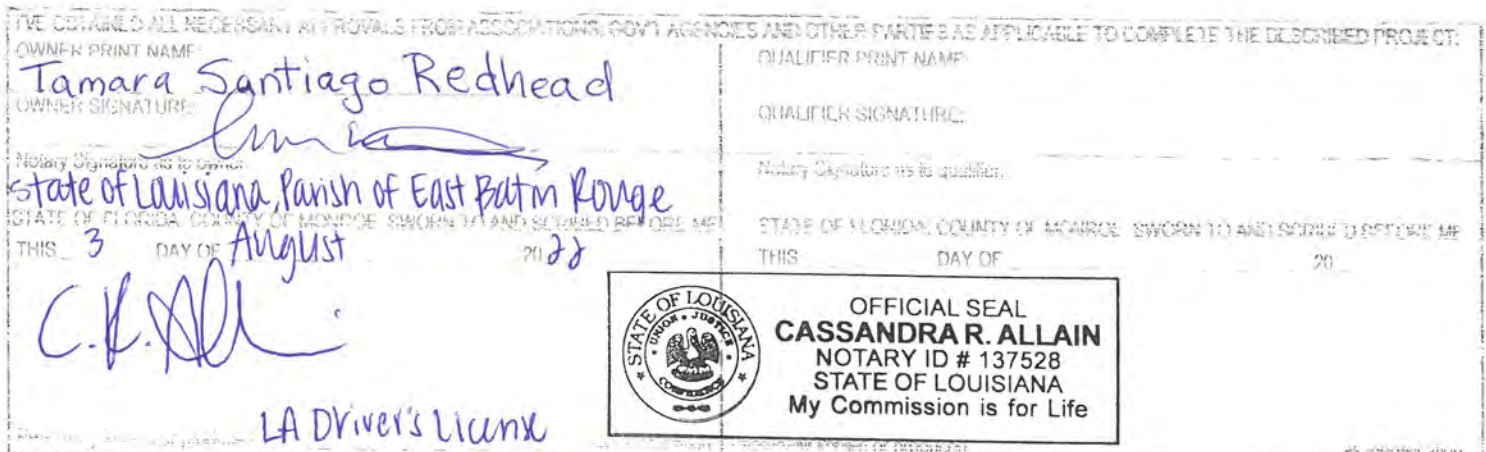 I'VE OBTAINED ALL NECESSARY APPROVALS FROM ASSOCIATIONS, GOV'T AGENCIES AND OTHER PARTIES AS APPLICABLE TO COMPLETE THE DESCRIBED PROJECT:
OWNER PRINT NAME:
Tamara Santiago Redhead
OWNER SIGNATURE:
Notary Signature as to owner:
State of Louisiana, Parish of East Baton Rouge
STATE OF FLORIDA, COUNTY OF MONROE SWORN TO AND SCRIBED BEFORE ME
THIS 3 DAY OF August 2022
C.R. All
LA Driver's License
QUALIFIER PRINT NAME:
QUALIFIER SIGNATURE:
Notary Signature as to qualifier:
STATE OF FLORIDA, COUNTY OF MONROE SWORN TO AND SCRIBED BEFORE ME
THIS DAY OF 20
STATE OF LOUISIANA
UNION JUSTICE
CONFIDENCE
OFFICIAL SEAL
CASSANDRA R. ALLAIN
NOTARY ID # 137528
STATE OF LOUISIANA
My Commission is for Life